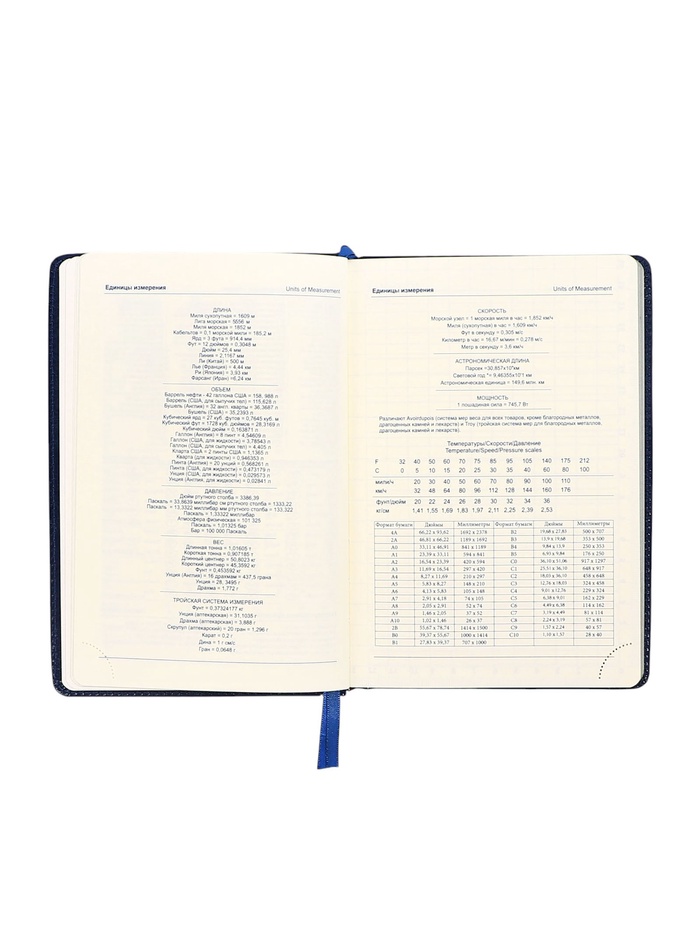 Единицы измерения
Units of Measurement
ДЛИНА
Миля сухопутная = 1609 м
Лига морская = 5556 м
Миля морская = 1852 м
Кабельтов = 0,1 морской мили = 185,2 м
Ярд = 3 фута = 914,4 мм
Фут = 12 дюймов = 0,3048 м
Дюйм = 25,4 мм
Линия = 2,1167 мм
Ли (Китай) = 500 м
Лье (Франция) = 4,44 км
Ри (Япония) = 3,93 км
Фарсанг (Иран) =6,24 км
ОБЪЕМ
Баррель нефти - 42 галлона США = 158, 988 л
Баррель (США, для сыпучих тел) = 115,628 л
Бушель (Англия) = 32 англ. кварты = 36,3687 л
Бушель (США) = 35,2393 л
Кубический ярд = 27 куб. футов = 0,7645 куб. м
Кубический фут = 1728 куб. дюймов = 28,3169 л
Кубический дюйм = 0,163871 л
Галлон (Англия) = 8 пинт = 4,54609 л
Галлон (США, для жидкости) = 3,78543 л
Галлон (США, для сыпучих тел) = 4,405 л
Кварта США = 2 пинты США = 1,1365 л
Кварта (для жидкости) = 0,946353 л
Пинта (Англия) = 20 унций = 0,568261 л
Пинта (США, для жидкости) = 0,473179 л
Унция (США, для жидкости) = 0,029573 л
Унция (Англия) = 0,02841 л
ДАВЛЕНИЕ
Дюйм ртутного столба = 3386,39
Паскаль = 33,8639 миллибар см ртутного столба = 1333,22
Паскаль = 13,3322 миллибар мм ртутного столба = 133,322
Паскаль = 1,33322 миллибар
Атмосфера физическая = 101 325
Паскаль = 1,01325 бар
Бар = 100 000 Паскаль
ВЕС
Длинная тонна = 1,01605 т
Короткая тонна = 0,907185 т
Длинный центнер = 50,8023 кг
Короткий центнер = 45,3592 кг
Фунт = 0,453592 кг
Унция (Англия) = 16 драхмам = 437,5 грана
Унция = 28, 3495 г
Драхма = 1,772 г
ТРОЙСКАЯ СИСТЕМА ИЗМЕРЕНИЯ
Фунт = 0,37324177 кг
Унция (аптекарская) = 31,1035 г
Драхма (аптекарская) = 3,888 г
Скрупул (аптекарский) = 20 гран = 1,296 г
Карат = 0,2 г
Дина = 1 г см/с
Гран = 0,0648 г
Единицы измерения
Units of Measurement
СКОРОСТЬ
Морской узел = 1 морская миля в час = 1,852 км/ч
Миля (сухопутная) в час = 1,609 км/ч
Фут в секунду = 0,305 м/с
Километр в час = 16,67 м/мин = 0,278 м/с
Метр в секунду = 3,6 км/ч
АСТРОНОМИЧЕСКАЯ ДЛИНА
Парсек =30,857х10¹²км
Астрономическая единица = 149,6 млн. км
МОЩНОСТЬ
1 лошадиная сила = 745,7 Вт
Различают Avoirdupois (система мер веса для всех товаров, кроме благородных металлов,
драгоценных камней и лекарств) и Troy (тройская система мер для благородных металлов,
драгоценных камней и лекарств).
Температуры/Скорости/Давление
Temperature/Speed/Pressure scales
F 32 40 50 60 70 75 85 95 105 140 175 212
C 0 5 10 15 20 25 30 35 40 60 80 100
мили/ч 20 30 40 50 60 70 80 90 100 110
км/ч 32 48 64 80 96 112 128 144 160 176
фунт/дюйм 20 22 24 26 28 30 32 34 36
кг/см 1,41 1,55 1,69 1,83 1,97 2,11 2,25 2,39 2,53
Формат бумаги Дюймы Миллиметры Формат бумаги Дюймы Миллиметры
4A 66,22 x 93,62 1682 x 2378 B2 19,68 x 27,83 500 x 707
2A 46,81 x 66,22 1189 x 1682 B3 13,9 x 19,68 353 x 500
A0 33,11 x 46,81 841 x 1189 B4 9,84 x 13,9 250 x 353
A1 23,39 x 33,11 594 x 841 B5 6,93 x 9,84 176 x 250
A2 16,54 x 23,39 420 x 594 C0 36,10 x 51,06 917 x 1297
A3 11,69 x 16,54 297 x 420 C1 25,51 x 36,10 648 x 917
A4 8,27 x 11,69 210 x 297 C2 18,03 x 25,51 458 x 648
A5 5,83 x 8,27 148 x 210 C3 12,76 x 18,03 324 x 458
A6 4,13 x 5,83 105 x 148 C4 9,01 x 12,76 229 x 324
A7 2,91 x 4,13 74 x 105 C5 6,38 x 9,01 162 x 229
A8 2,05 x 2,91 52 x 74 C6 4,49 x 6,38 114 x 162
A9 1,46 x 2,05 37 x 52 C7 3,19 x 4,49 81 x 114
A10 1,02 x 1,46 26 x 37 C8 2,24 x 3,19 57 x 81
2B 55,67 x 78,74 1414 x 1500 C9 1,57 x 2,24 40 x 57
B0 39,37 x 55,67 1000 x 1414 C10 1,10 x 1,57 28 x 40
B1 27,83 x 39,37 707 x 1000